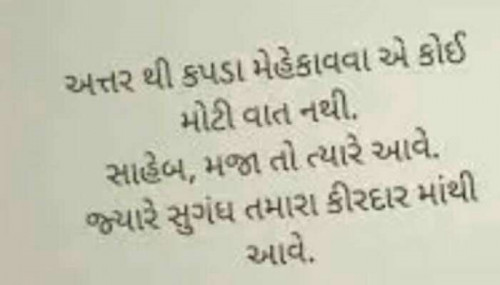 અત્તર થી કપડા મેહેકાવવા એ કોઈ
મોટી વાત નથી.
સાહેબ, મજા તો ત્યારે આવે.
જ્યારે સુગંધ તમારા કીરદાર માંથી
આવે.